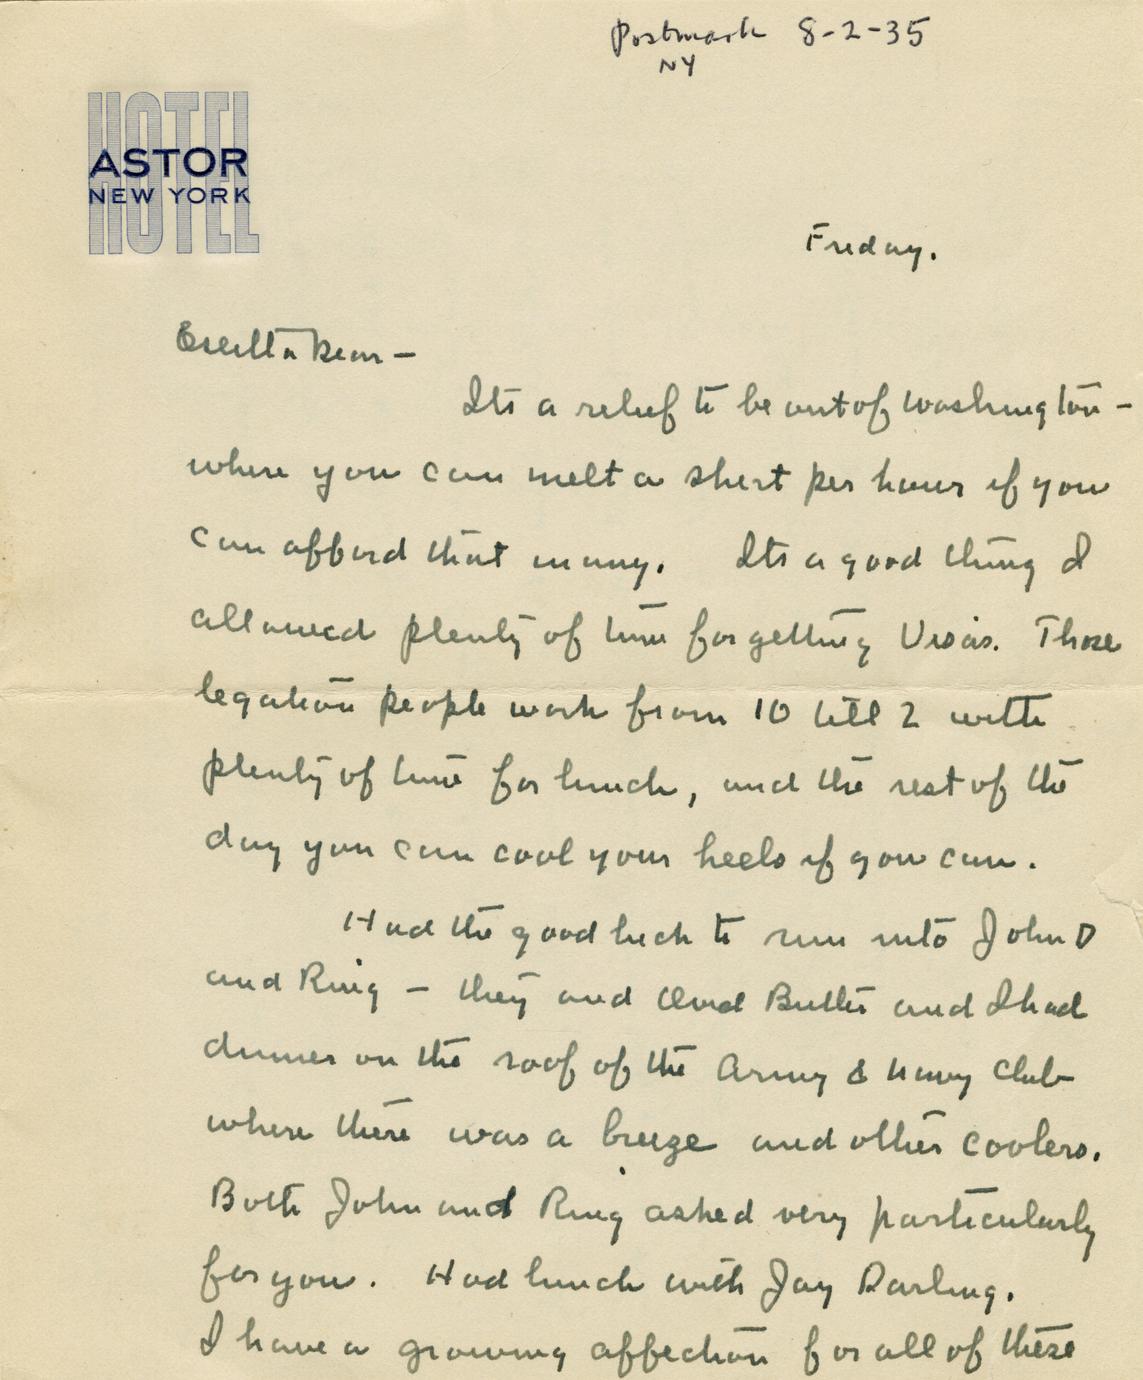 Postmark 8-2-35
NY
HOTEL
ASTOR
NEW YORK
HOTEL
Friday.
Estella Dear —
Its a relief to be out of Washington —
where you can melt a shirt per hour if you
can afford that many. Its a good thing I
allowed plenty of time for getting Visas. Those
legation people work from 10 till 2 with
plenty of time for lunch, and the rest of the
day you can cool your heels if you can.
Had the good luck to run into John D
and Ring — they and Ovid Butler and I had
dinner on the roof of the Army & Navy Club
where there was a breeze and other coolers.
Both John and Ring asked very particularly
for you. Had lunch with Jay Darling.
I have a growing affection for all of these